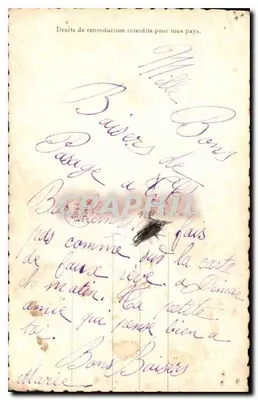 Droits de reproduction interdits pour tous pays.
Mille Bons
Baisers de
Passage a
fais
pas comme sur la carte
de faire a
matin. Ta petite
amie qui pense bien a
toi.
Bons Baisers
Marie
CPAPHIL